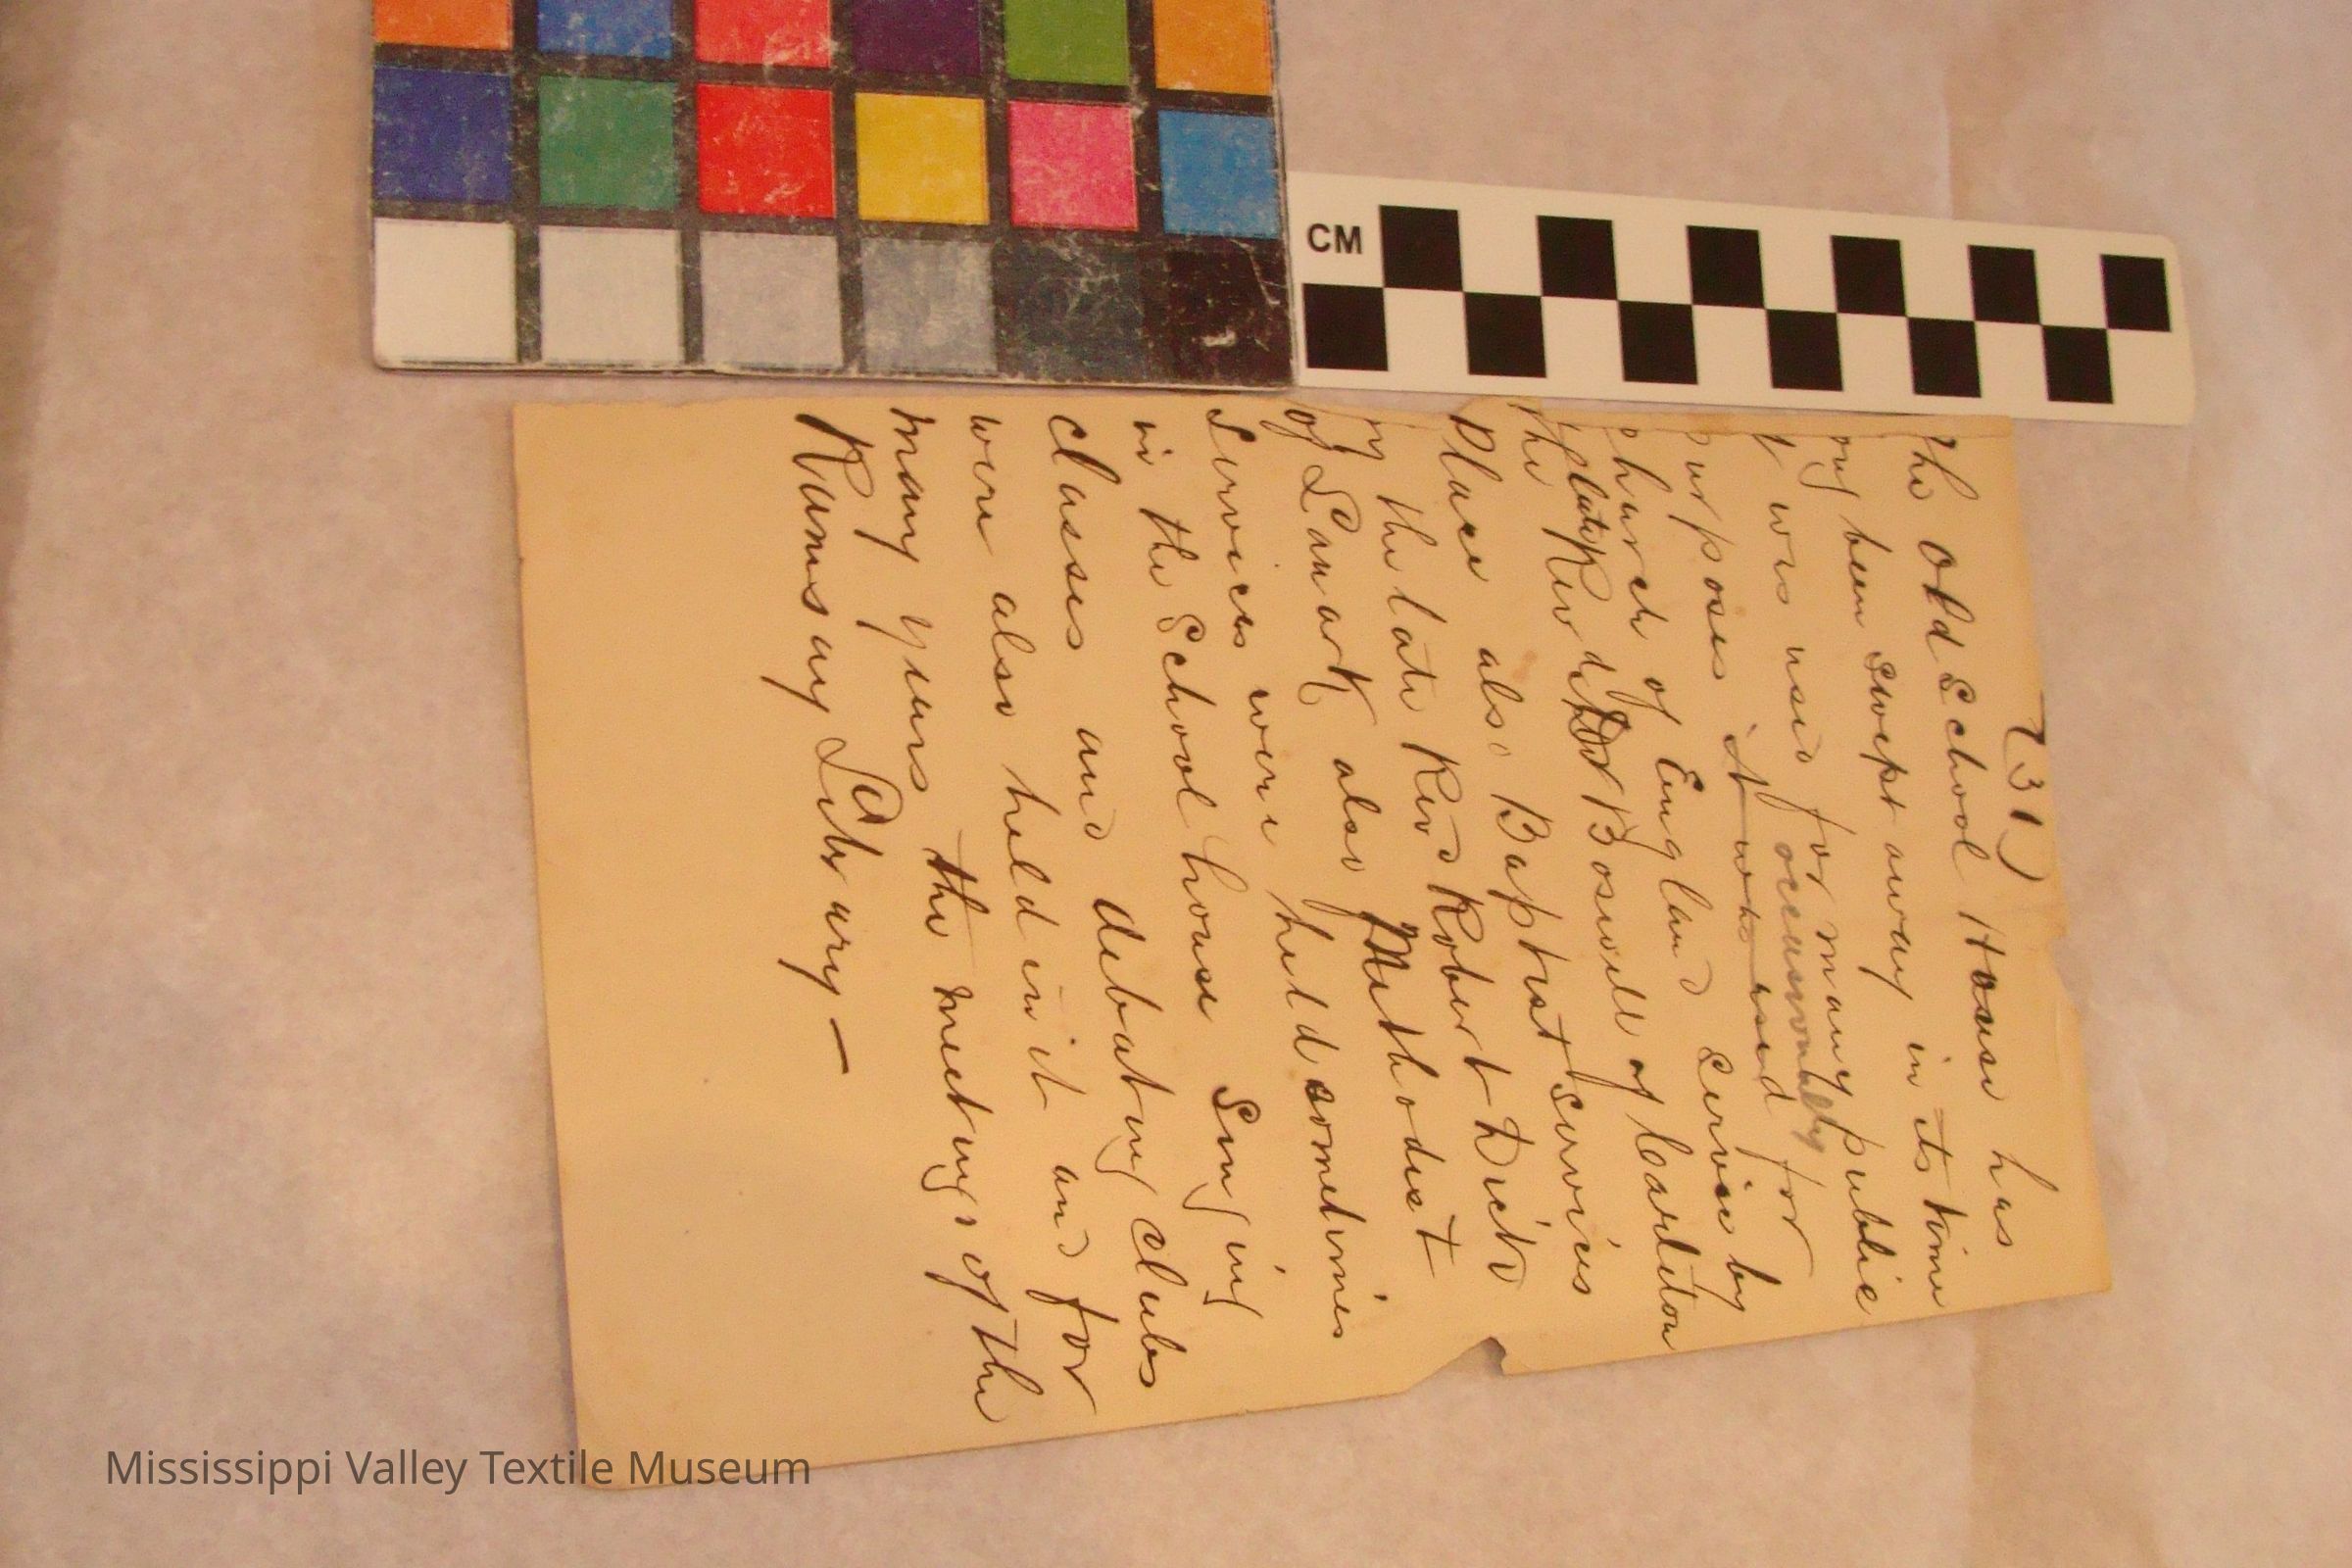 (31)
The Old School House has
ong been swept away in its time
it was used for many public
occasionally
purposes it was used for
church of England service by
the late Rev d Dr Boswell of Carleton
Place also Baptist services
by the late Revd Robert Dick
of Lanark also Methodist
Services were held sometimes
in the School house Singing
classes and debating clubs
were also held in it and for
many years the meetings of the
Ramsay Library —
CM
Mississippi Valley Textile Museum